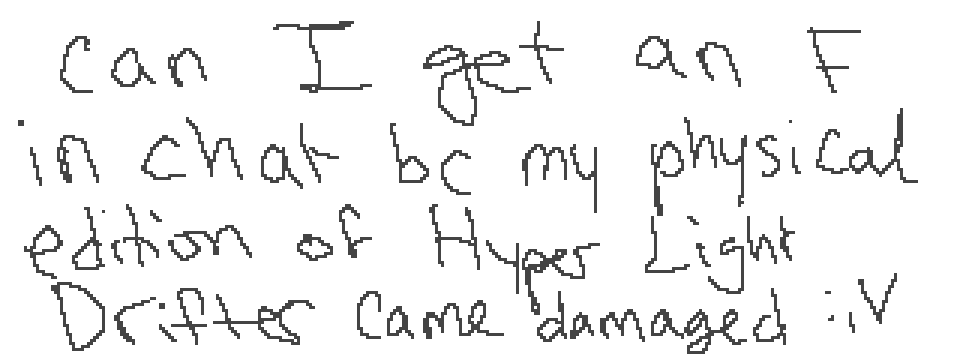 Can I get an F
in chat bc my physical
edition of Hyper Light
Drifter came damaged :,V